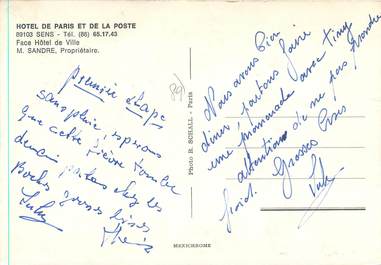 HOTEL DE PARIS ET DE LA POSTE
89103 SENS - Tél. (86) 65.17.43
Face Hôtel de Ville
M. SANDRE, Propriétaire.
(89)
première étape
sans pluie, espérons
que cette fièvre tombe
demain partons chez les
grosses bises
Photo R. SCHALL - Paris
Nous avons bien
dîner, partons faire
une promenade avec Tiny
attention de ne pas prendre
froid. Grosses Bises
MEXICHROME